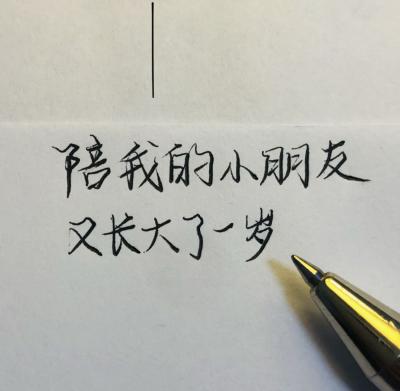 陪我的小朋友
又长大了一岁